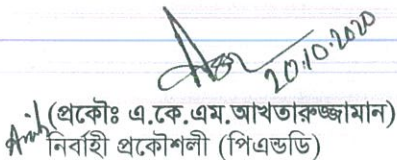 20.10.2020
(প্রকৌঃ এ.কে.এম.আখতারুজ্জামান)
নির্বাহী প্রকৌশলী (পিএন্ডডি)